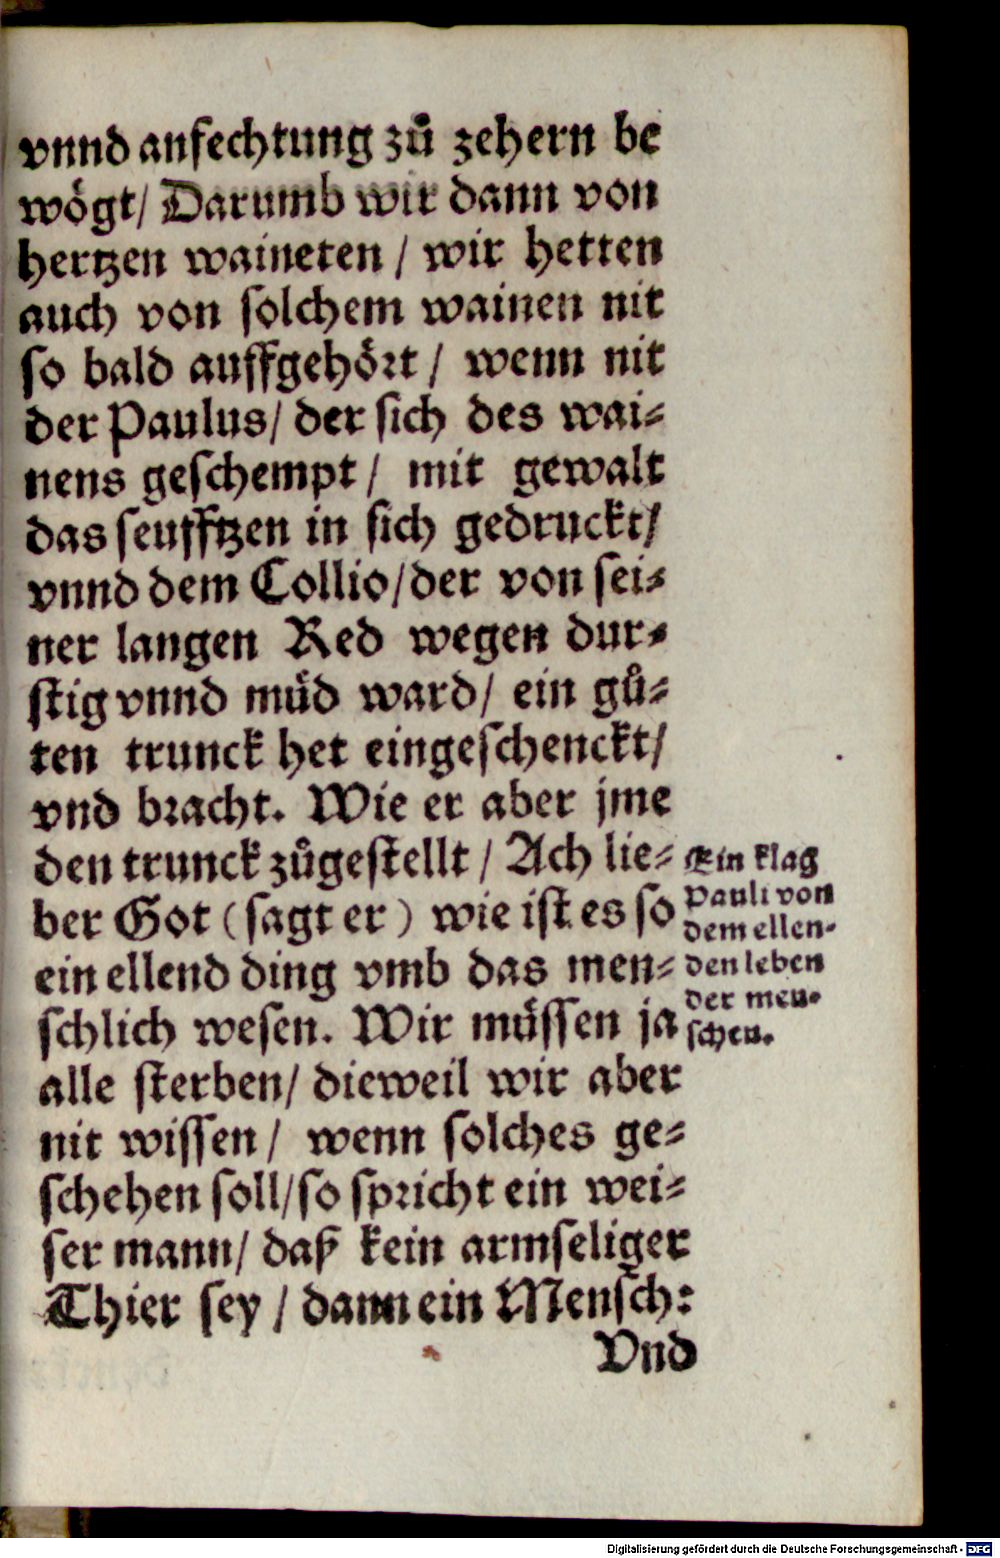 vnnd anfechtung zů zehern be
wögt/ Darumb wir dann von
hertzen waineten / wir hetten
auch von solchem wainen nit
so bald auffgehört / wenn nit
der Paulus/ der sich des wai⸗
nens geschempt / mit gewalt
das seufftzen in sich gedruckt/
vnnd dem Collio/der von sei⸗
ner langen Red wegen dur⸗
stig vnnd müd ward/ ein gů⸗
ten trunck het eingeschenckt/
vnd bracht. Wie er aber jme
den trunck zůgestellt / Ach lie⸗
ber Got (sagt er) wie ist es so
ein ellend ding vmb das men⸗
schlich wesen. Wir müssen ja
alle sterben/ dieweil wir aber
nit wissen / wenn solches ge⸗
schehen soll/so spricht ein wei⸗
ser mann/ daß kein armseliger
Thier sey / dann ein Mensch:
Vnd
Ein klag
Pauli von
dem ellen⸗
den leben
der men⸗
schen.
Digitalisierung gefördert durch die Deutsche Forschungsgemeinschaft - DFG